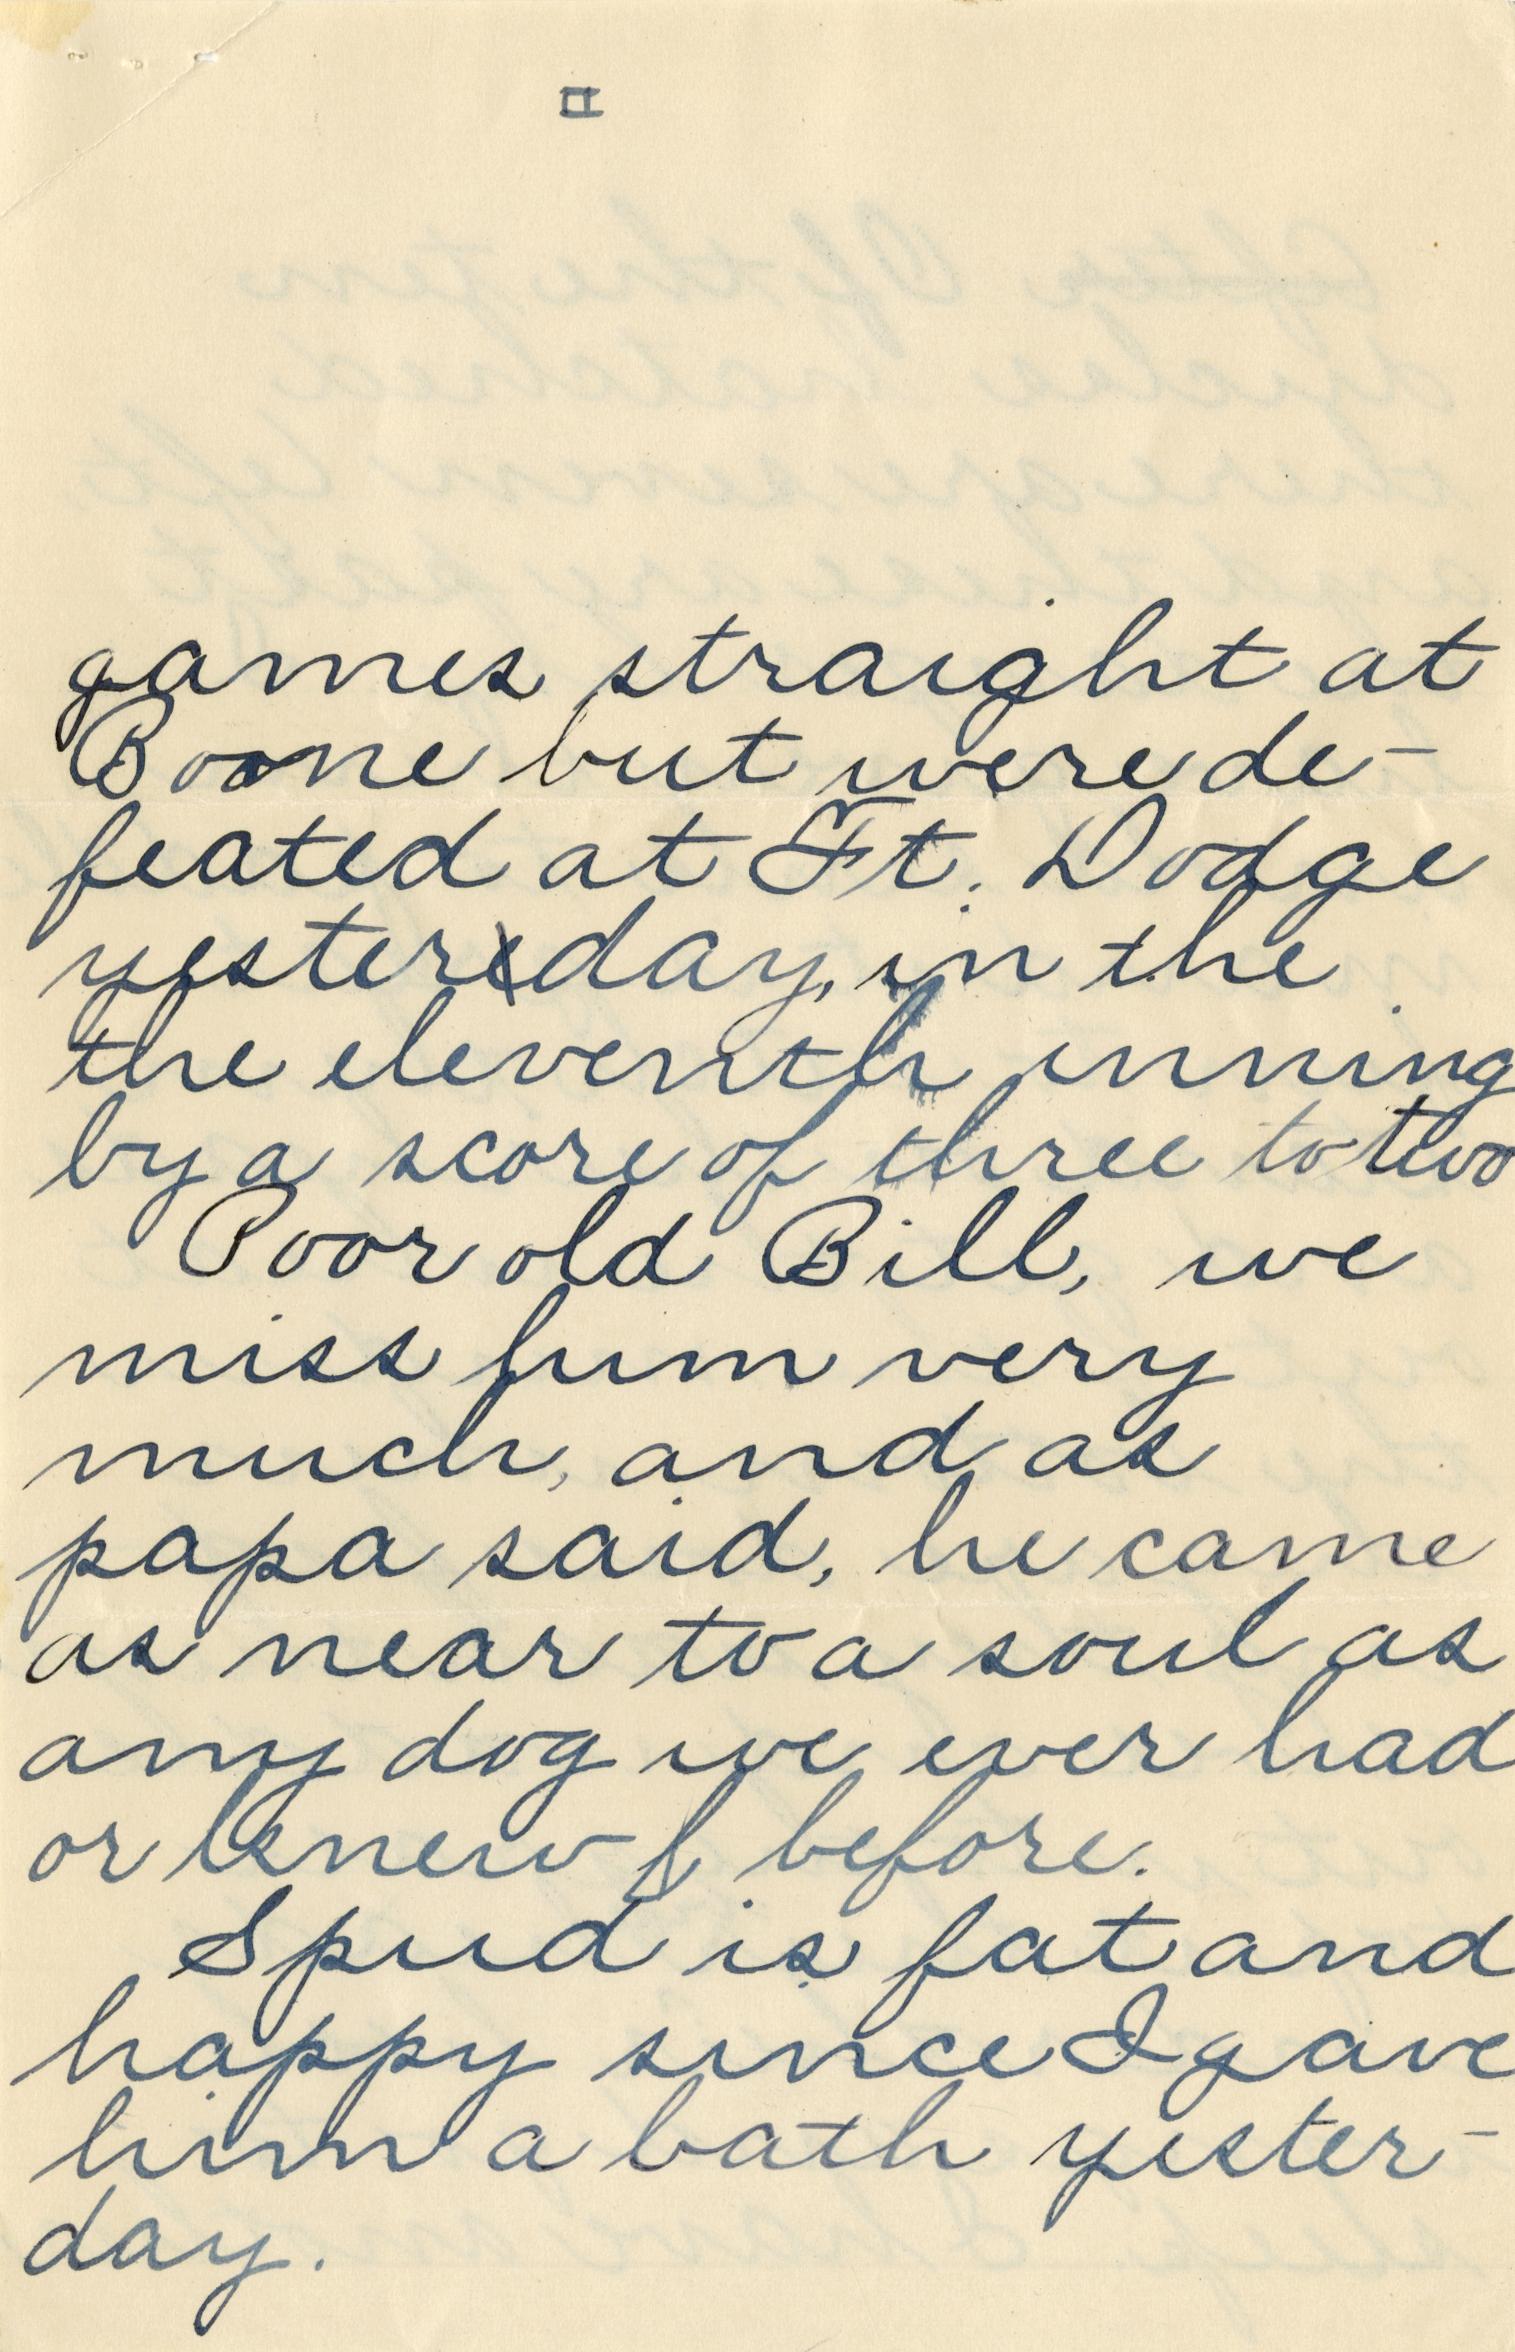 games straight at
Boone but were de-
feated at Ft. Dodge
yesterday, in the
the eleventh inning
by a score of three to two
Poor old Bill, we
miss him very
much, and as
papa said, he came
as near to a soul as
any dog we ever had
or knew before.
Spud is fat and
happy since I gave
him a bath yester-
day.